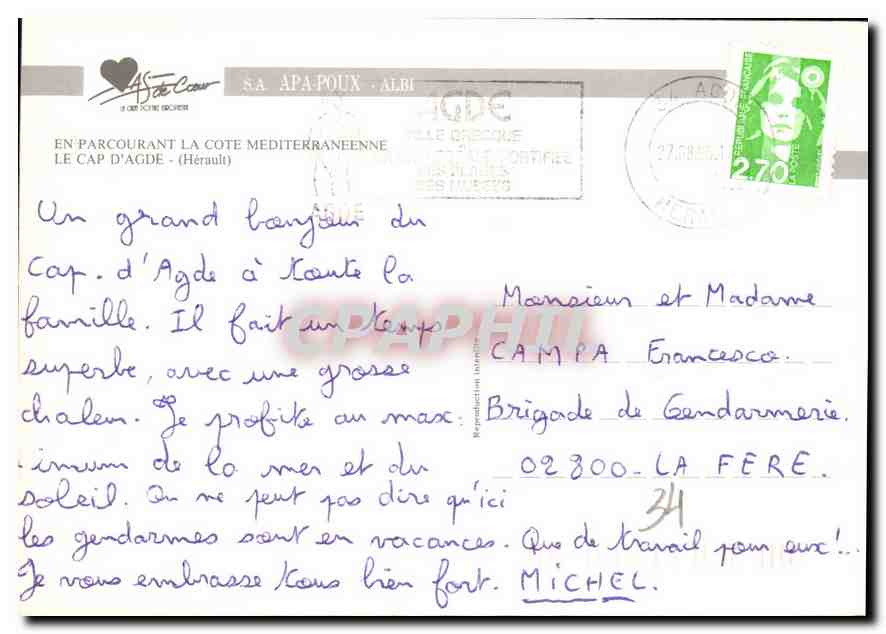 As de Cœur
S.A. APA-POUX - ALBI
EN PARCOURANT LA COTE MEDITERRANEENNE
LE CAP D'AGDE - (Hérault)
AGDE
VILLE GRECQUE
FORTIFIEE
SES PLAGES
SES MUSEES
AGDE
AGDE
REPUBLIQUE FRANÇAISE
2,70
LA POSTE
Un grand bonjour du
Cap. d'Agde à toute la
famille. Il fait un temps
superbe, avec une grosse
chaleur. Je profite au max-
imum de la mer et du
soleil. On ne peut pas dire qu'ici
les gendarmes sont en vacances. Que de travail pour eux!...
Je vous embrasse tous bien fort. MICHEL.
Reproduction interdite
Monsieur et Madame
CAMPA Francesco.
Brigade de Gendarmerie.
02800 - LA FERE.
34
CPAPHIL